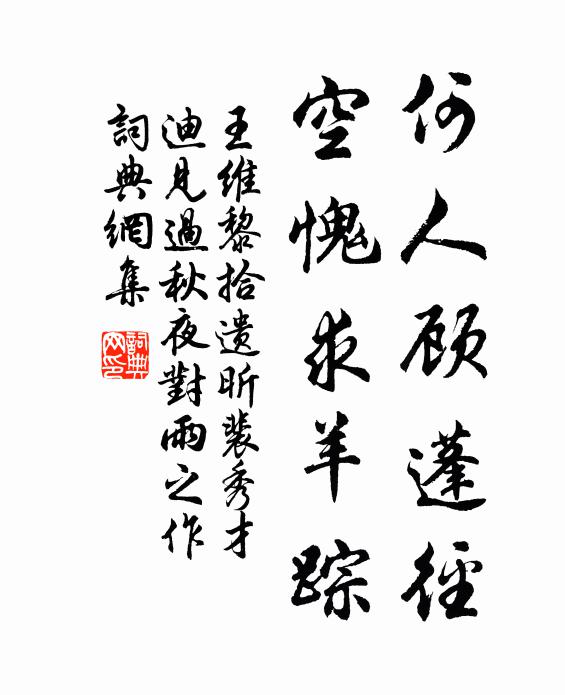 何人顾蓬径
空愧求羊踪
王維黎拾遗昕裴秀才
迪見過秋夜對雨之作
詞典網集
詞典網印